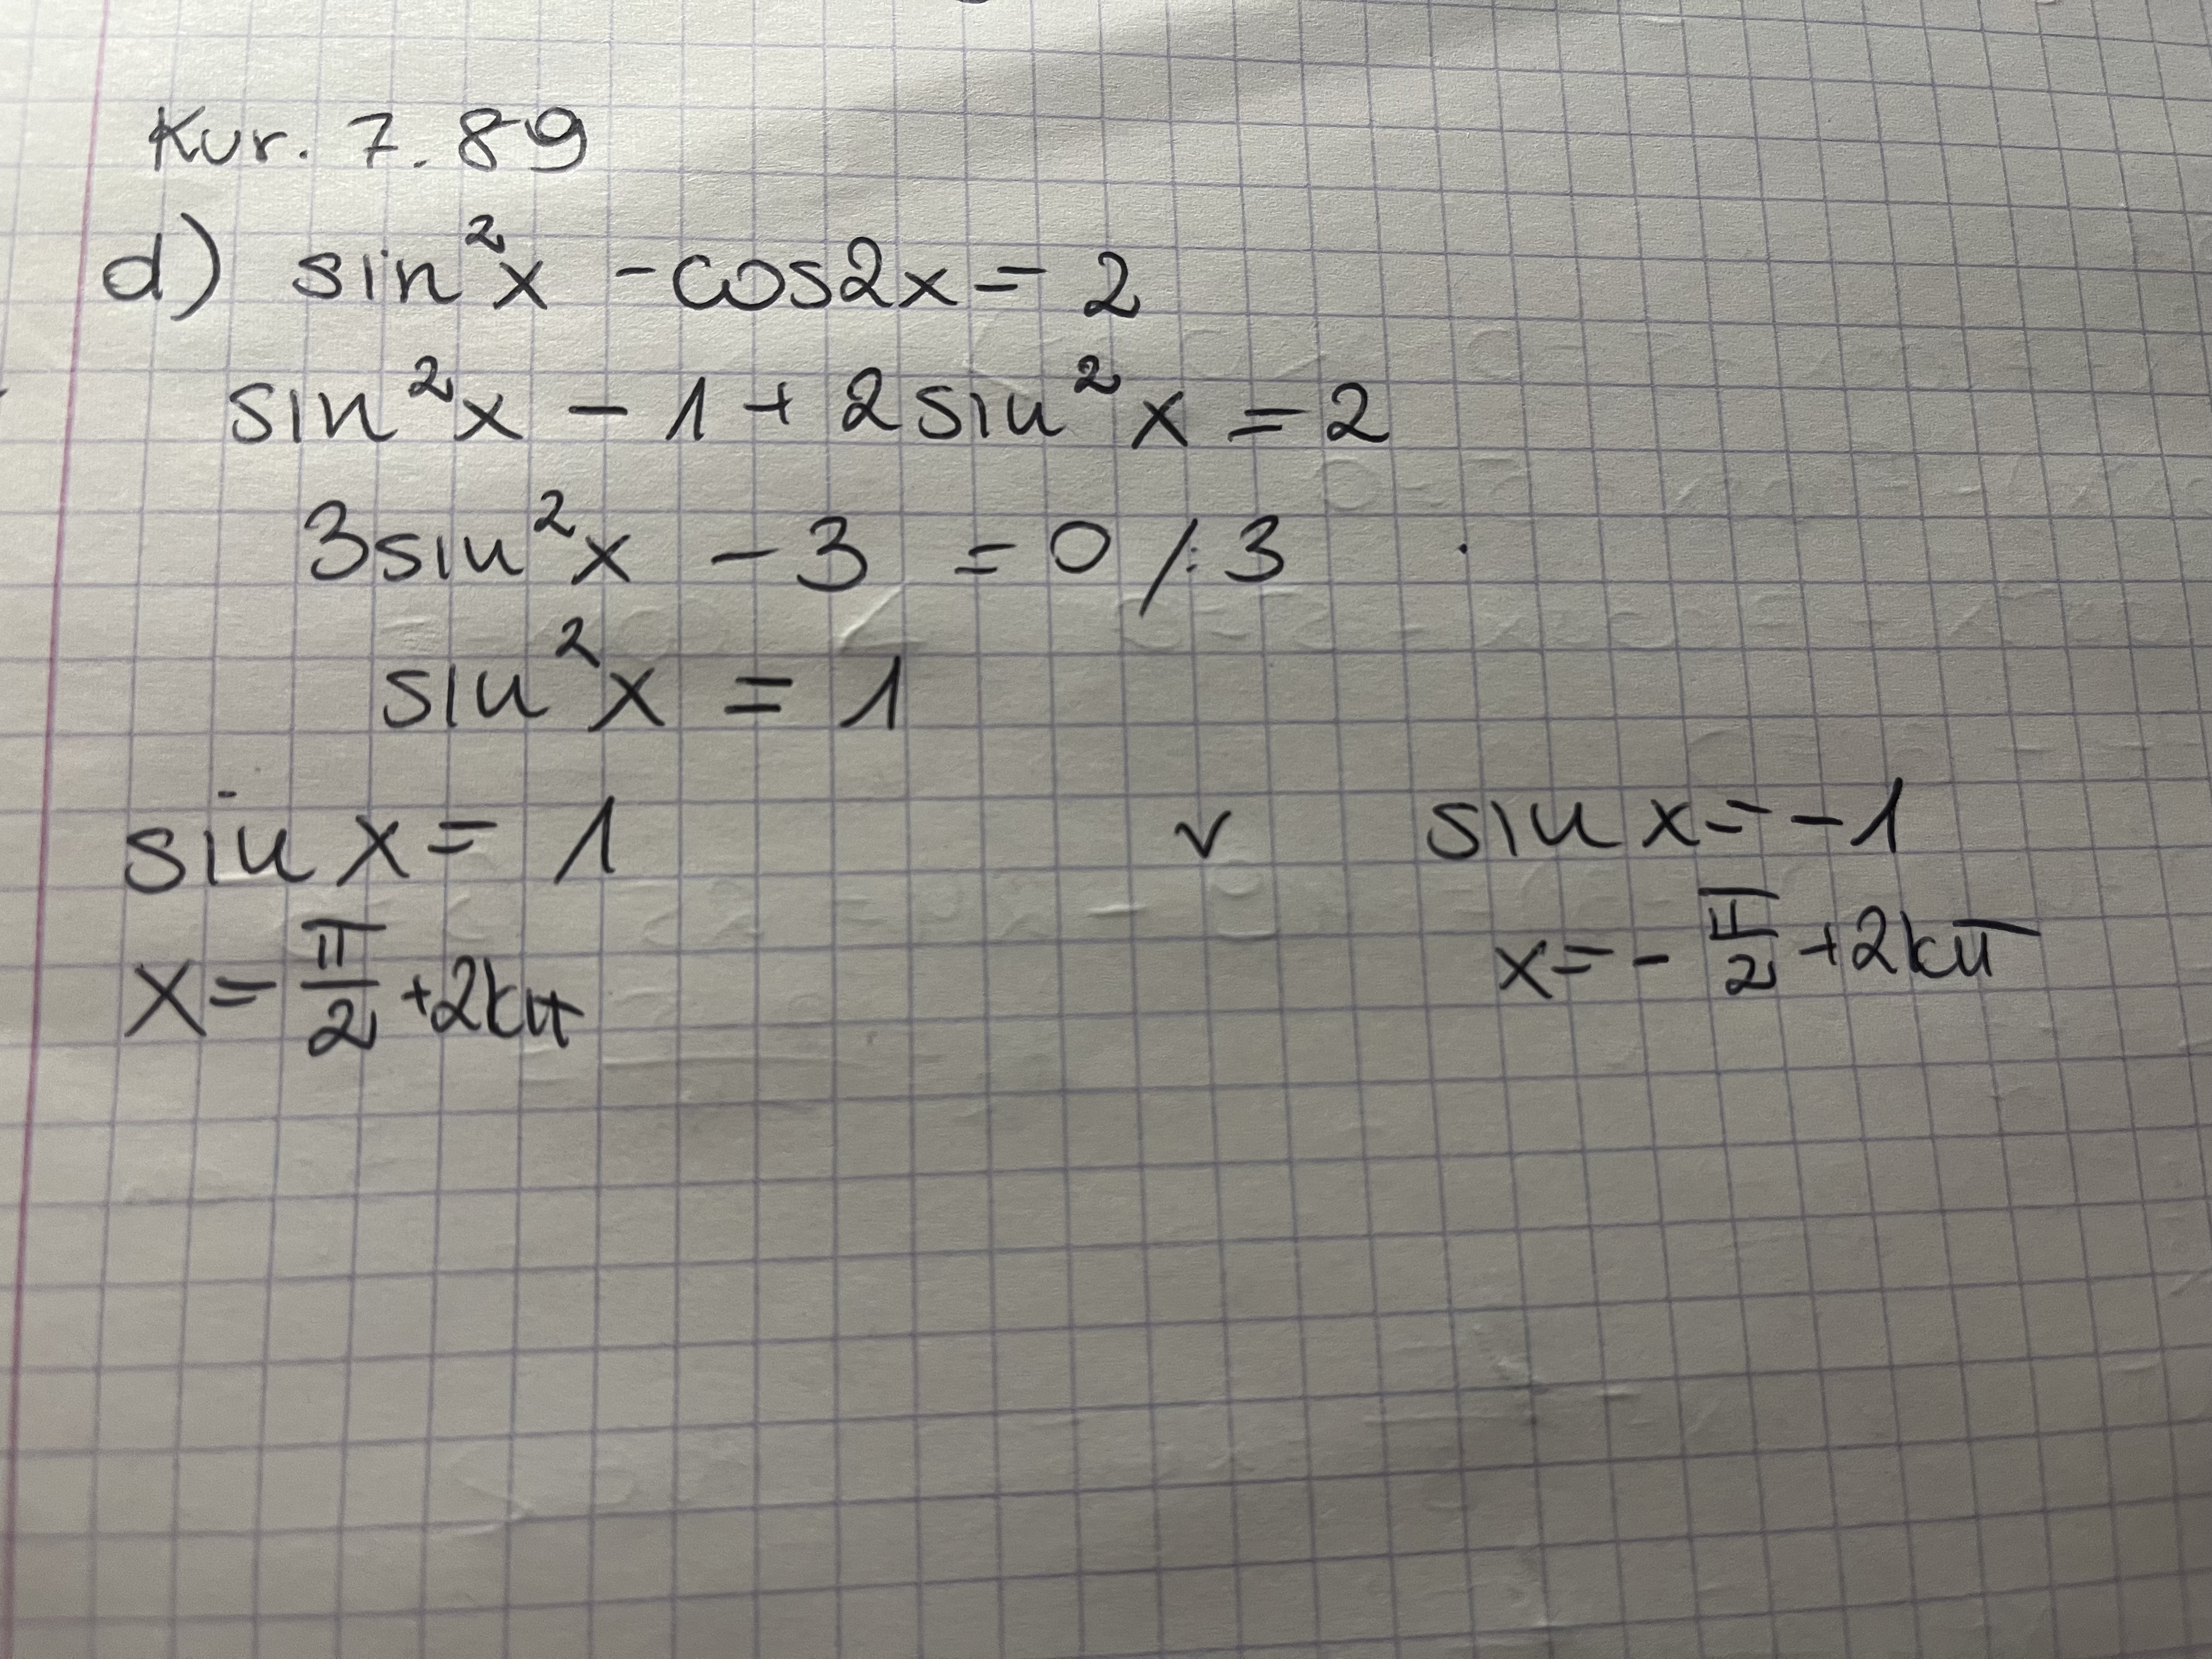 Kur. 7.89
d) sin²x - cos2x = 2
sin²x - 1 + 2sin²x = 2
3sin²x - 3 = 0 /:3
sin²x = 1
sin x = 1 v sin x = -1
x = π/2 + 2kπ x = - π/2 + 2kπ